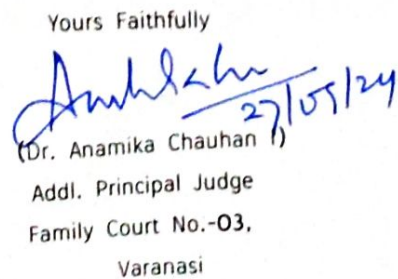 Yours Faithfully
27/05/24
(Dr. Anamika Chauhan )
Addl. Principal Judge
Family Court No.-03,
Varanasi